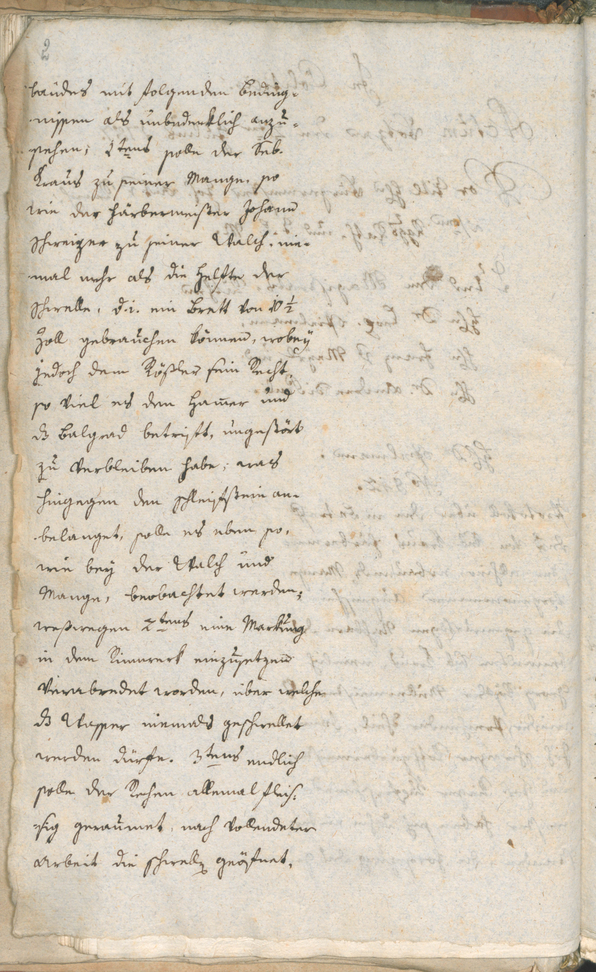 2
baudes mit folgenden Beding-
nissen als unbedenklich anzu-
sehen; 1tens solle der Seb.
Kraus zu seiner Mange, so
wie der Färbermeister Johann
Schweizer zu seiner Walch, nie-
mal mehr als die Helfte der
Schwelle, d. i. ein Brett von 10 1/2
Zoll gebrauchen können, wobey
jedoch dem Rößler sein Recht,
so viel es den Hamer und
ds Balgrad betrifft, ungestört
zu verbleiben habe; was
hingegen den Schleifstein an-
belanget, solle es eben so,
wie bey der Walch und
Mange, beobachtet werden;
weßwegen 2tens eine Markung
in dem Rinnwerk einzusetzen
verabredet worden, über welche
ds Wasser niemals geschwellet
werden dürfe. 3tens endlich
solle der Rechen allemal fleis-
sig geraumet, nach vollendeter
Arbeit die Schwelle geöfnet,